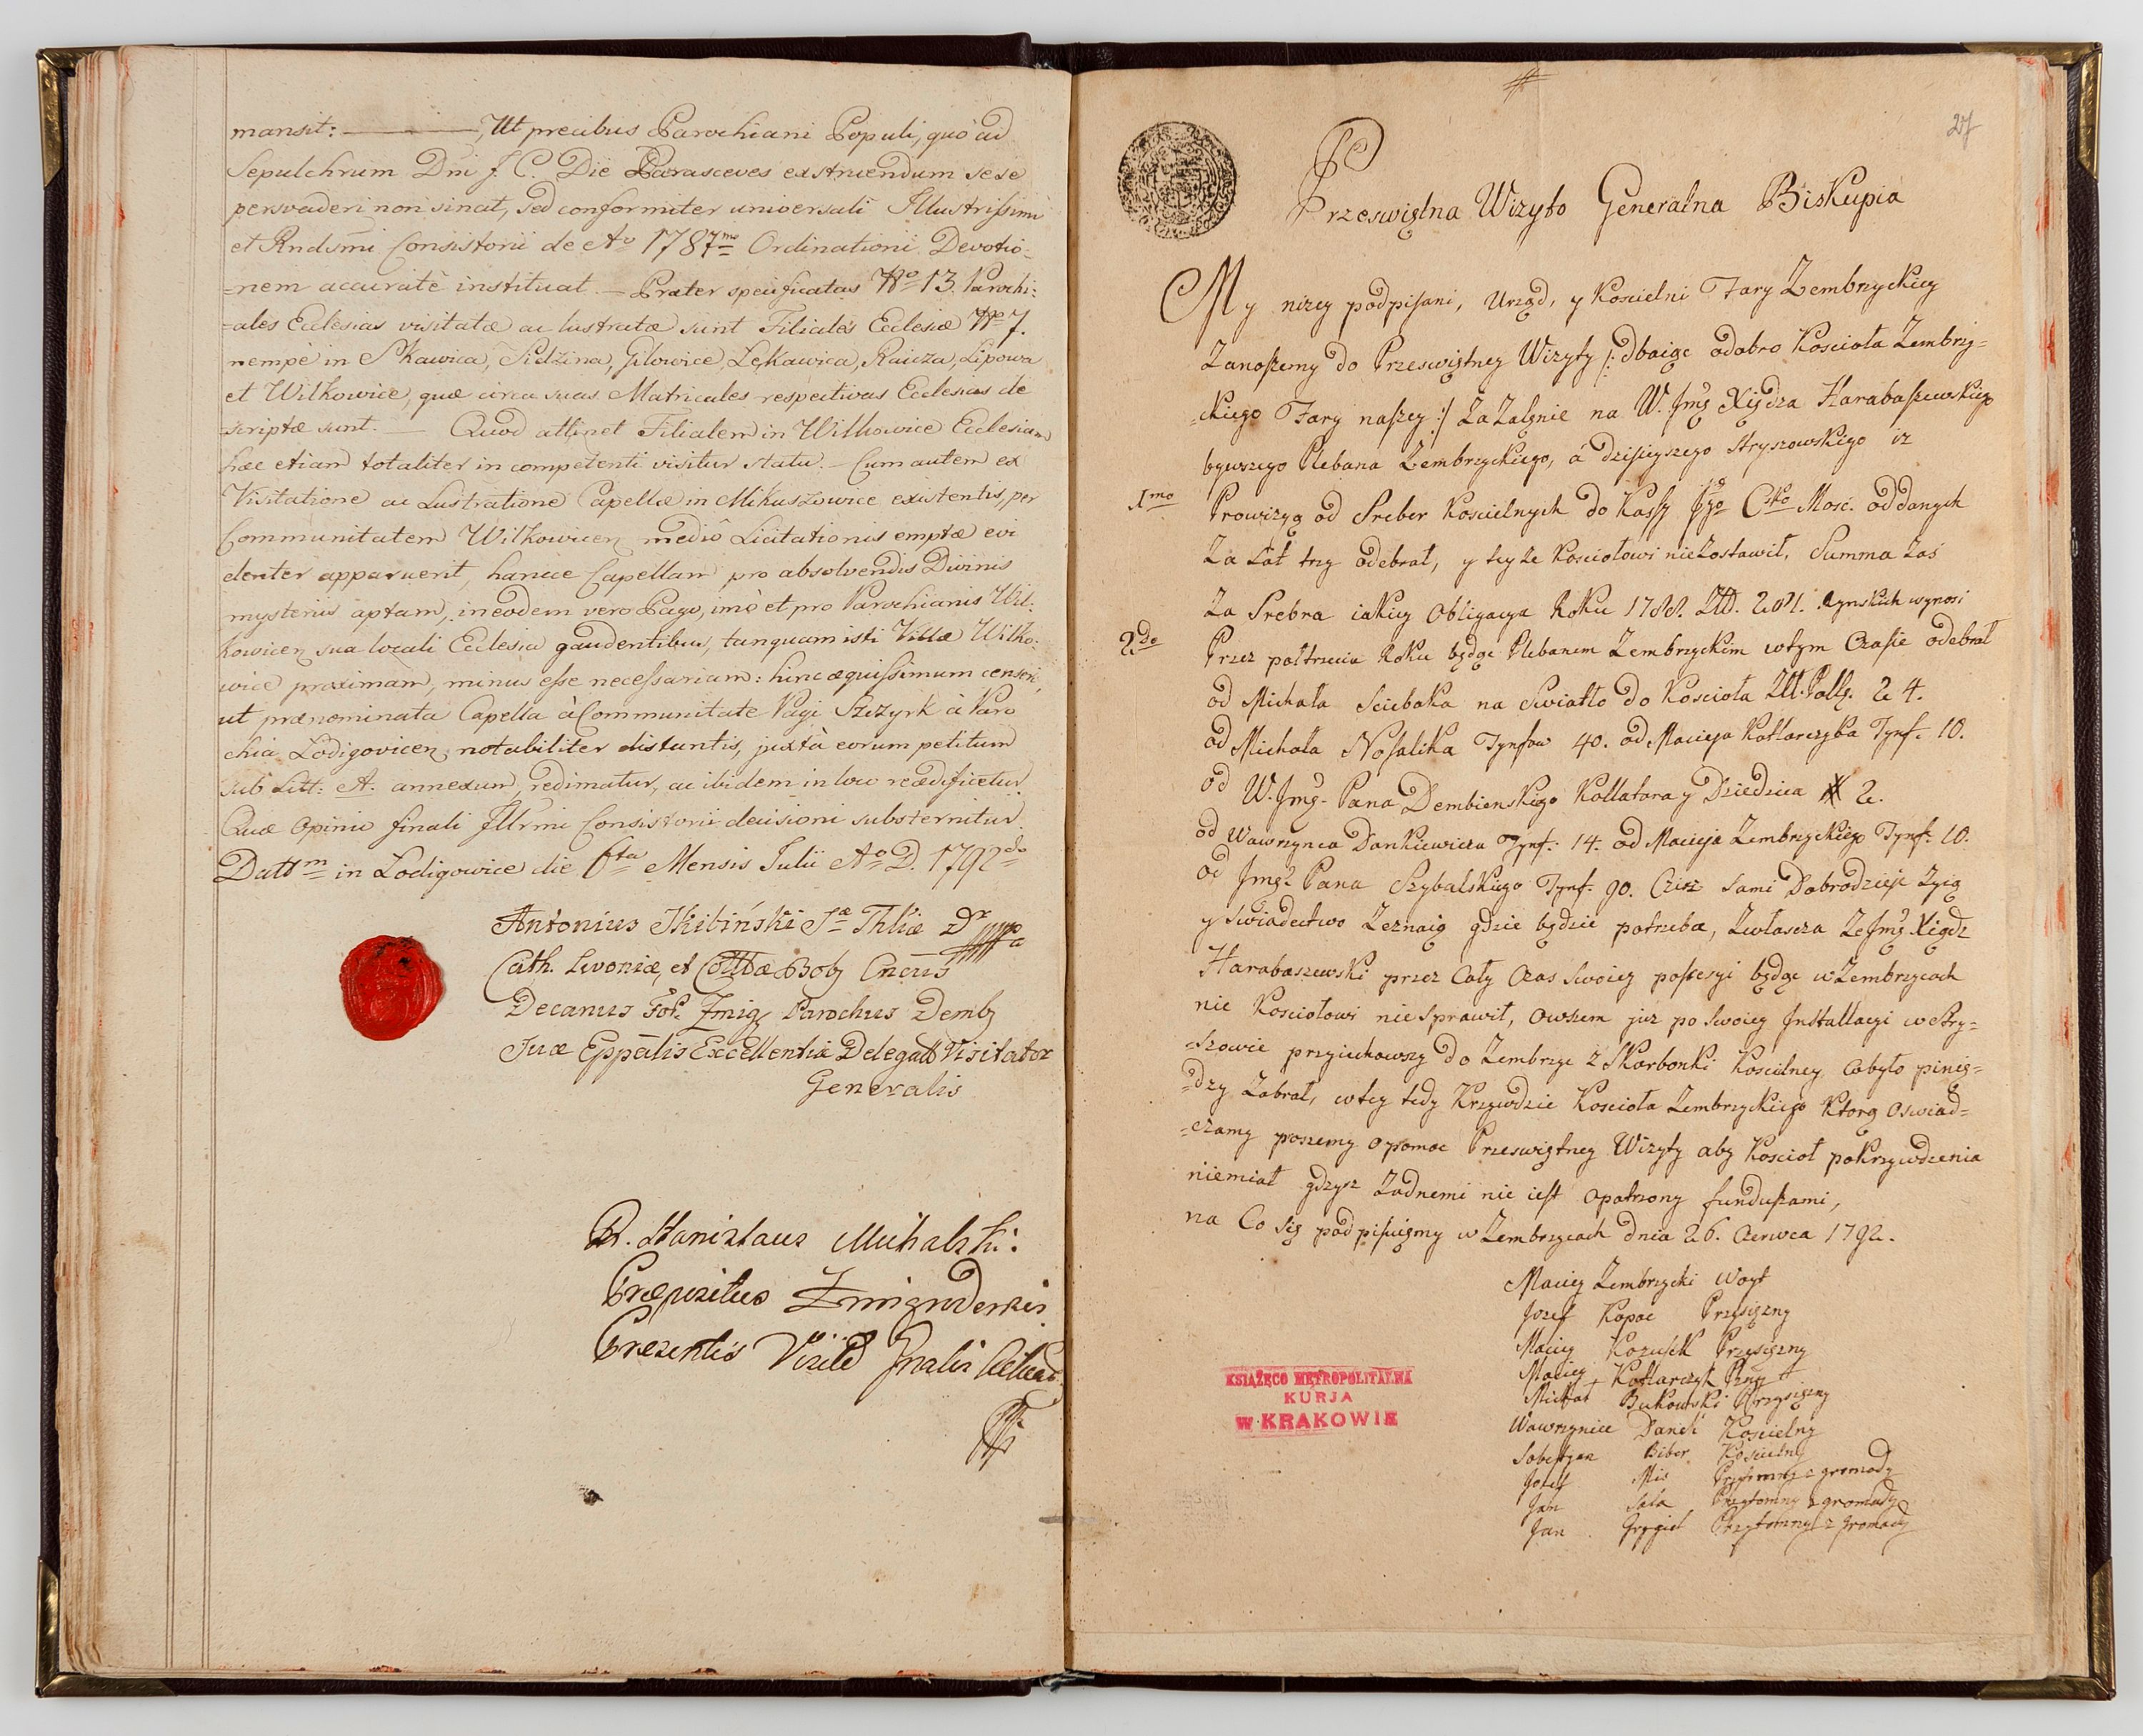 mansit: ———— Ut precibus Parochiani Populi, quo ad
Sepulchrum Dni J. C. Die Parasceves exstruendum sese
persvaderi non sinat, sed conformiter universali Illustrissimi
et Rndsmi Consistorii de Ao 1787mo Ordinationi Devotio-
=nem accuratè instituat. — Præter specificatas No 13. Parochi=
=ales Ecclesias visitatæ ac lustratæ sunt Filiales Ecclesiæ No 7.
nempè in Skawica, Sidzina, Gilowice, Lękawica, Raicza, Lipowa
et Wilkowice, quæ circa suas Matricales respectivas Ecclesias de
=scriptæ sunt. — Quod attinet Filialem in Wilkowice Ecclesiam
hæc etiam totaliter in competenti visitur statu. — Cum autem ex
Visitatione ac Lustratione Capellæ in Mikuszowice existentis, per
Communitatem Wilkowicen mediô Licitationis emptæ evi
denter apparuerit, hancce Capellam pro absolvendis Divinis
mysteriis aptam, in eodem vero Pago, imò et pro Parochianis Wil:
kowicen sua locali Ecclesia gaudentibus, tanquam isti Villæ Wilko-
wice proximam, minus esse necessariam: hinc æquissimum censeri,
ut prænominata Capella à Communitate Pagi Szczyrk à Paro
chia Lodigovicen notabiliter distantis, juxtà eorum petitum
sub Litt: A. annexum, redimatur, ac ibidem in loco reædificetur.
Quæ Opinio finali Illrmi Consistorii decisioni substernitur.
Datt m in Lodigowice die 6ta Mensis Julii Ao D. 1792do
Antonius Skibiński Sæ Thliæ Dr
Cath. Livoniæ, et Cncus
Decanus For. Zmig Parochus Demb
Suæ Eppalis Excellentiæ Delegatt Visitator
Generalis
R. Stanislaus Michalski.
Præpositus Zmigrodensis
Presentis Visitt Gnalis
27
Przeswiętna Wizyto Generalna Biskupia
My nizey podpisani, Urząd, y Koscielni Fary Zembrzyckiey
Zanosiemy do Przeswiętney Wizyty /: dbaiąc odobro Kosciola Zembrzy=
=ckiego Fary naszey :/ Zazalęnie na W. Jmę Xiędza Harabaszewskiego
bywszego Plebana Zembrzyckiego, á dzisieyszego Stryszowskiego iz
1mo Prowizyą od Sreber Koscielnych do Kassy Jgo Csko Mosc. oddanych
Za Lat trzy odebrał, y teyze Kosciołowi niezostawił, Summa Zas
Za Srebra iakiey Obligacya Roku 1788. Złł. 201. Rynskich wynosi
2do Przez pałtrzecia Roku będąc Plebanem Zembrzyckim wtym Czasie odebrał
od Michała Sciebaka na Swiatło do Kosciola Złł. Polls. 24.
od Michała Nosalika Tynfow 40. od Macieja Kotlarczyka Tynf. 10.
od W. Jmę. Pana Dembienskiego Kollatora y Dziedzica # 2.
od Wawrzynca Dankiewicza Tynf. 14. od Macieja Zembrzyckiego Tynf. 10.
od Jmę Pana Szybalskiego Tynf. 90. Cisz Sami Dobrodzieje Zyią
y Swiadectwo Zeznaią gdzie będzie potrzeba, Zwłaszcza Ze Jmę Xiędz
Harabaszewski przez Cały Czas Swoiey possesyi będąc w Zembrzycach
nic Kosciołowi nie Sprawił, Owszem juz po Swoiey Instalacyi w Stry=
=szowie przyiechawszy do Zembrzyc z Skarbonki Koscielney Cobyło pinię=
=dzy Zabrał, wtey tedy Krzywdzie Kosciola Zembrzyckiego Ktorą Oswiad=
=czamy prosziemy opomoc Przeswiętney Wizyty aby Kosciol pokrzywdzenia
niemiał gdysz Zadnemi nie iest opatrzony funduszami,
na Co Się podpisuięmy w Zembrzycach dnia 26. Czerwca 1792.
Maciey Zembrzycki Woyt
Jozef Kopac Przysięzny
Maciey Kozusik Przysięzny
Maciey Kotlarczyk Przy
Michał Bukowski Przysięzny
Wawrzyniec Danek Koscielny
Sobestyan Biber Koscielny
Jozef Mis Przytomny z gromady
Jan Sala Przytomny z gromady
Jan Grygiel Przytomny z gromady
KSIĄŻĘCO METROPOLITALNA
KURJA
W KRAKOWIE